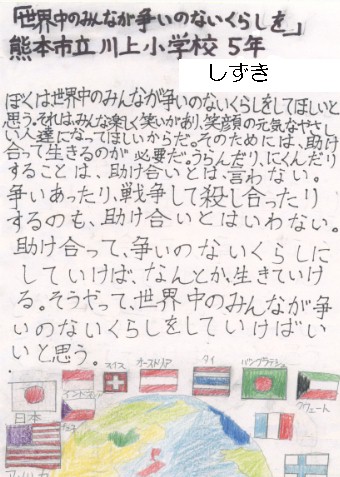 「世界中のみんなが争いのないくらしを」
熊本市立川上小学校 5年
しずき
ぼくは世界中のみんなが争いのないくらしをしてほしいと
思う。それは、みんな楽しく笑いがあり、笑顔の元気なやさし
い人達になってほしいからだ。そのためには、助け
合って生きるのが必要だ。うらんだり、にくんだり
することは、助け合いとは言わない。
争いあったり、戦争して殺し合ったり
するのも、助け合いとはいわない。
助け合って、争いのないくらしに
していけば、なんとか、生きていけ
る。そうやって、世界中のみんなが争
いのないくらしをしていけばい
いと思う。
スイス
オーストリア
タイ
バングラデシュ
クウェート
日本
インドネシア
アメリカ